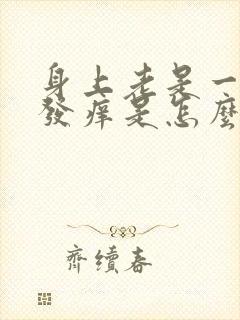 身上老是一
發癢是怎麼
齊續春